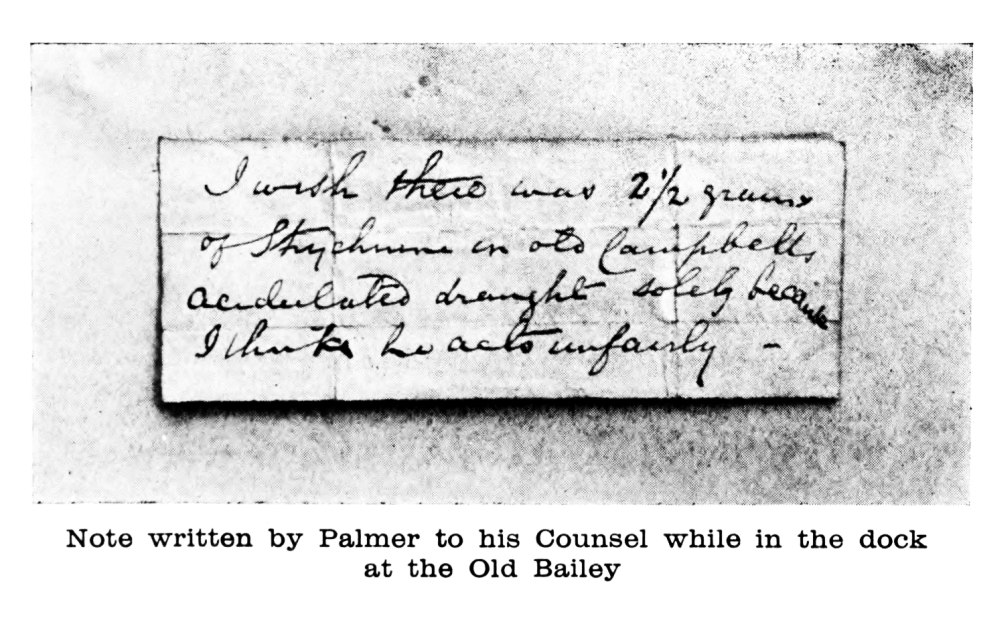 I wish there was 2 1/2 grains
of Strychnine in old Campbells
acidulated draught solely because
I think he acts unfairly –
Note written by Palmer to his Counsel while in the dock
at the Old Bailey